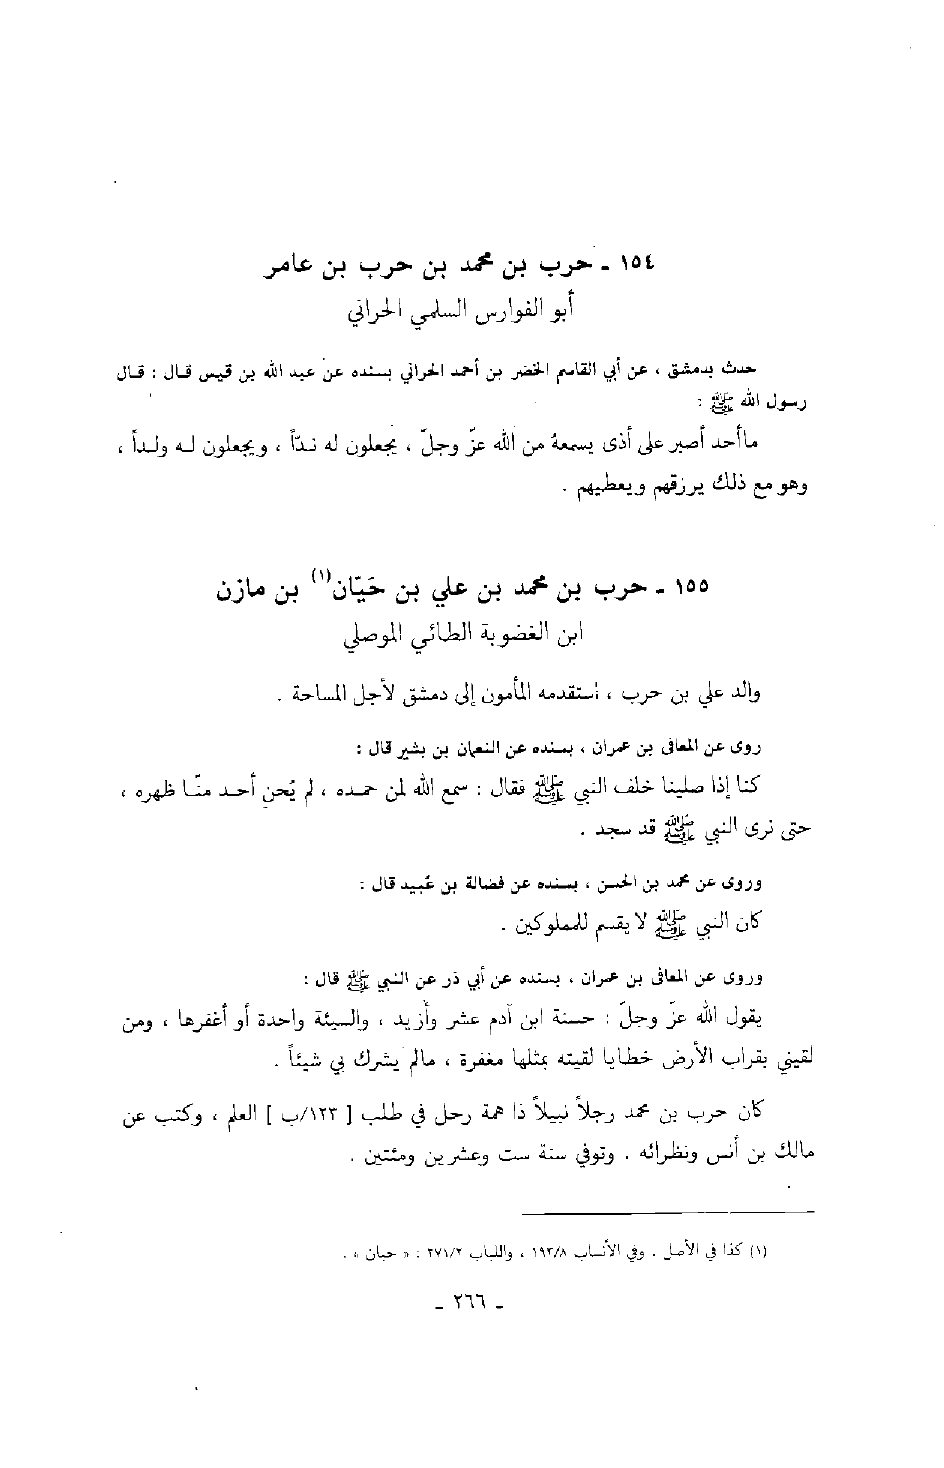 ١٥٤ ـ حرب بن محمد بن حرب بن عامر
أبو الفوارس السلمي الحراني
حدث بدمشق ، عن أبي القاسم الخضر بن أحمد الحراني بسنده عن عبد الله بن قيس قال : قال
رسول الله ﷺ :
ماأحد أصبر على أذى يسمعهُ من الله عزّ وجلّ ، يجعلون له ندّاً ، ويجعلون له ولداً ،
وهو مع ذلك يرزقهم ويعطيهم .
١٥٥ ـ حرب بن محمد بن علي بن حَيّان(١) بن مازن
ابن الغضوبة الطائي الموصلي
والد علي بن حرب ، أستقدمه المأمون إلى دمشق لأجل المساحة .
روى عن المعافى بن عمران ، بسنده عن النعمان بن بشير قال :
كنا إذا صلينا خلف النبي ﷺ فقال : سمع الله لمن حمده ، لم يُحنِ أحد منّا ظهره ،
حتى نرى النبي ﷺ قد سجد .
وروى عن محمد بن الحسن ، بسنده عن فضالة بن عُبيد قال :
كان النبي ﷺ لا يقسم للمملوكين .
وروى عن المعافى بن عمران ، بسنده عن أبي ذر عن النبي ﷺ قال :
يقول الله عزّ وجلّ : حسنة ابن آدم عشر وأزيد ، والسيئة واحدة أو أغفرها ، ومن
لقيني بقراب الأرض خطايا لقيته بمثلها مغفرة ، مالم يشرك بي شيئاً .
كان حرب بن محمد رجلاً نبيلاً ذا همة رحل في طلب [ ١٢٣/ب ] العلم ، وكتب عن
مالك بن أنس ونظرائه . وتوفي سنة ست وعشرين ومئتين .
(١) كذا في الأصل . وفي الأنساب ١٩٢/٨ ، واللباب ٢٧١/٢ : « حبان » .
ـ ٢٦٦ ـ